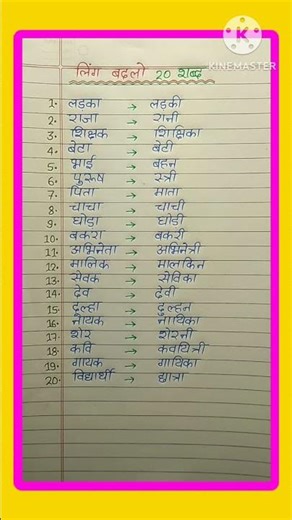 KINEMASTER
लिंग बदलो 20 शब्द
1. लड़का → लड़की
2. राजा → रानी
3. शिक्षक → शिक्षिका
4. बेटा → बेटी
5. भाई → बहन
6. पुरूष → स्त्री
7. पिता → माता
8. चाचा → चाची
9. घोड़ा → घोड़ी
10. बकरा → बकरी
11. अभिनेता → अभिनेत्री
12. मालिक → मालकिन
13. सेवक → सेविका
14. देव → देवी
15. दुल्हा → दुल्हन
16. नायक → नायिका
17. शेर → शेरनी
18. कवि → कवयित्री
19. गायक → गायिका
20. विद्यार्थी → छात्रा